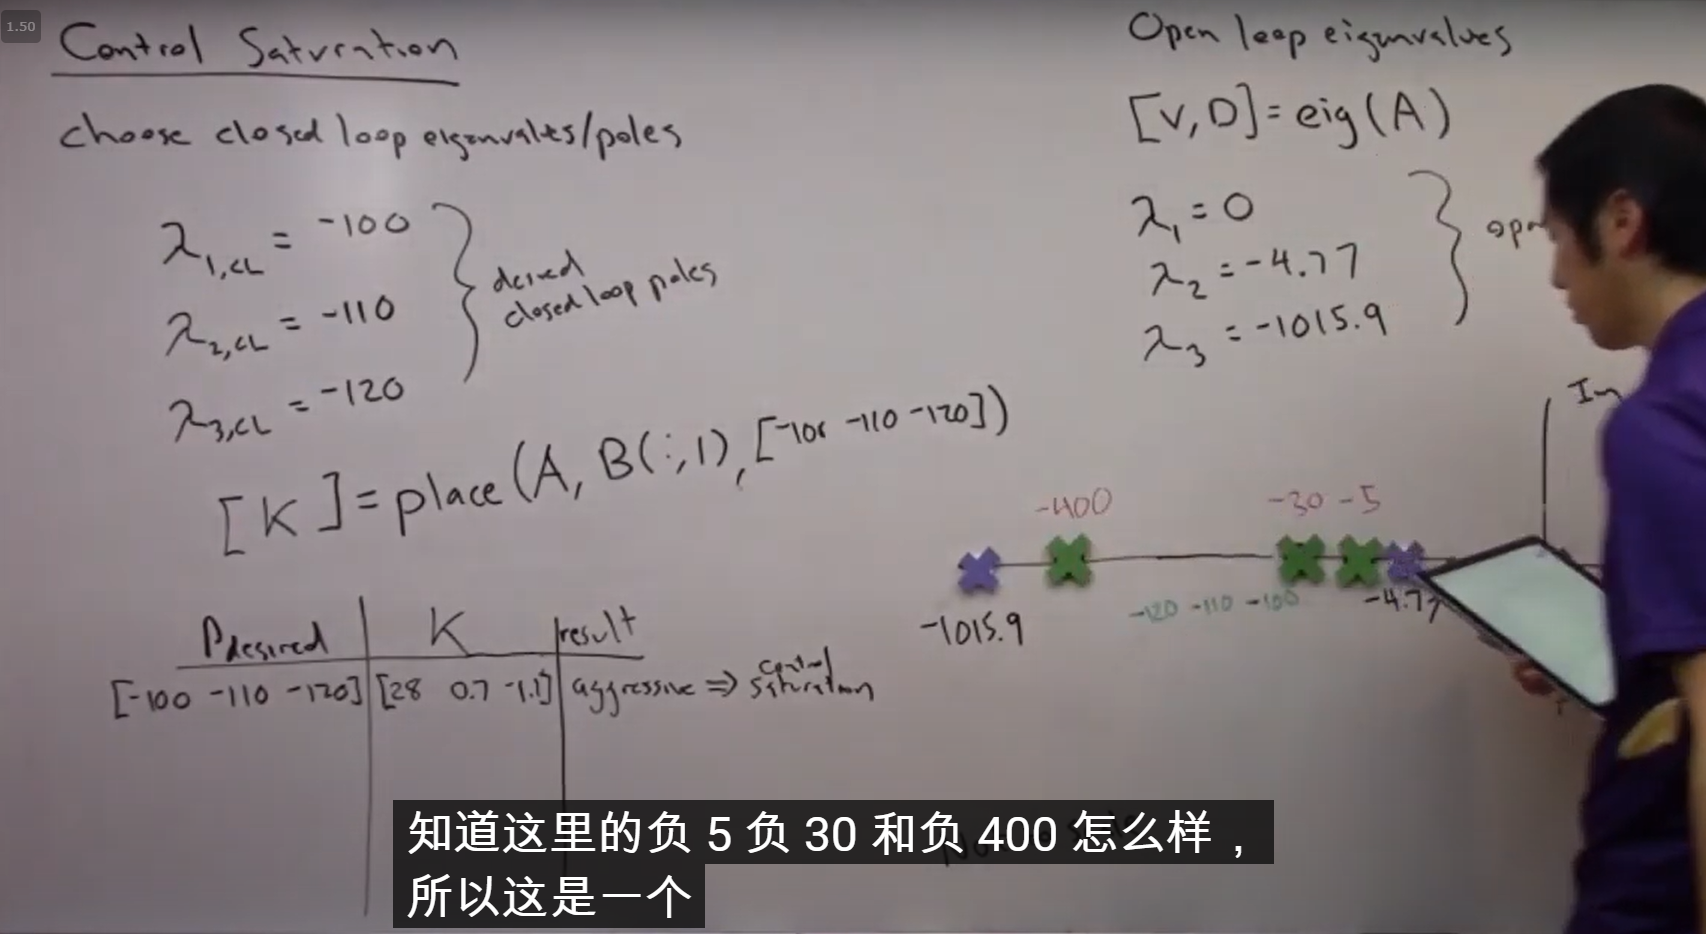 1.50
Control Saturation
choose closed loop eigenvalues/poles
λ1,CL = -100
λ2,CL = -110
λ3,CL = -120
desired
closed loop poles
[K] = place(A, B(:,1), [-100 -110 -120])
Pdesired K result
[-100 -110 -120] [28 0.7 -1.1] aggressive ⇒ control saturation
Open loop eigenvalues
[V,D] = eig(A)
λ1 = 0
λ2 = -4.77
λ3 = -1015.9
-400 -30 -5
-120 -110 -100
-1015.9
-4.77
知道这里的负 5 负 30 和负 400 怎么样，
所以这是一个